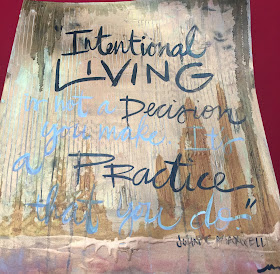 "Intentional
LIVING
is not a Decision
you make
a PRactice
that you do."
JOHN C MAXWELL